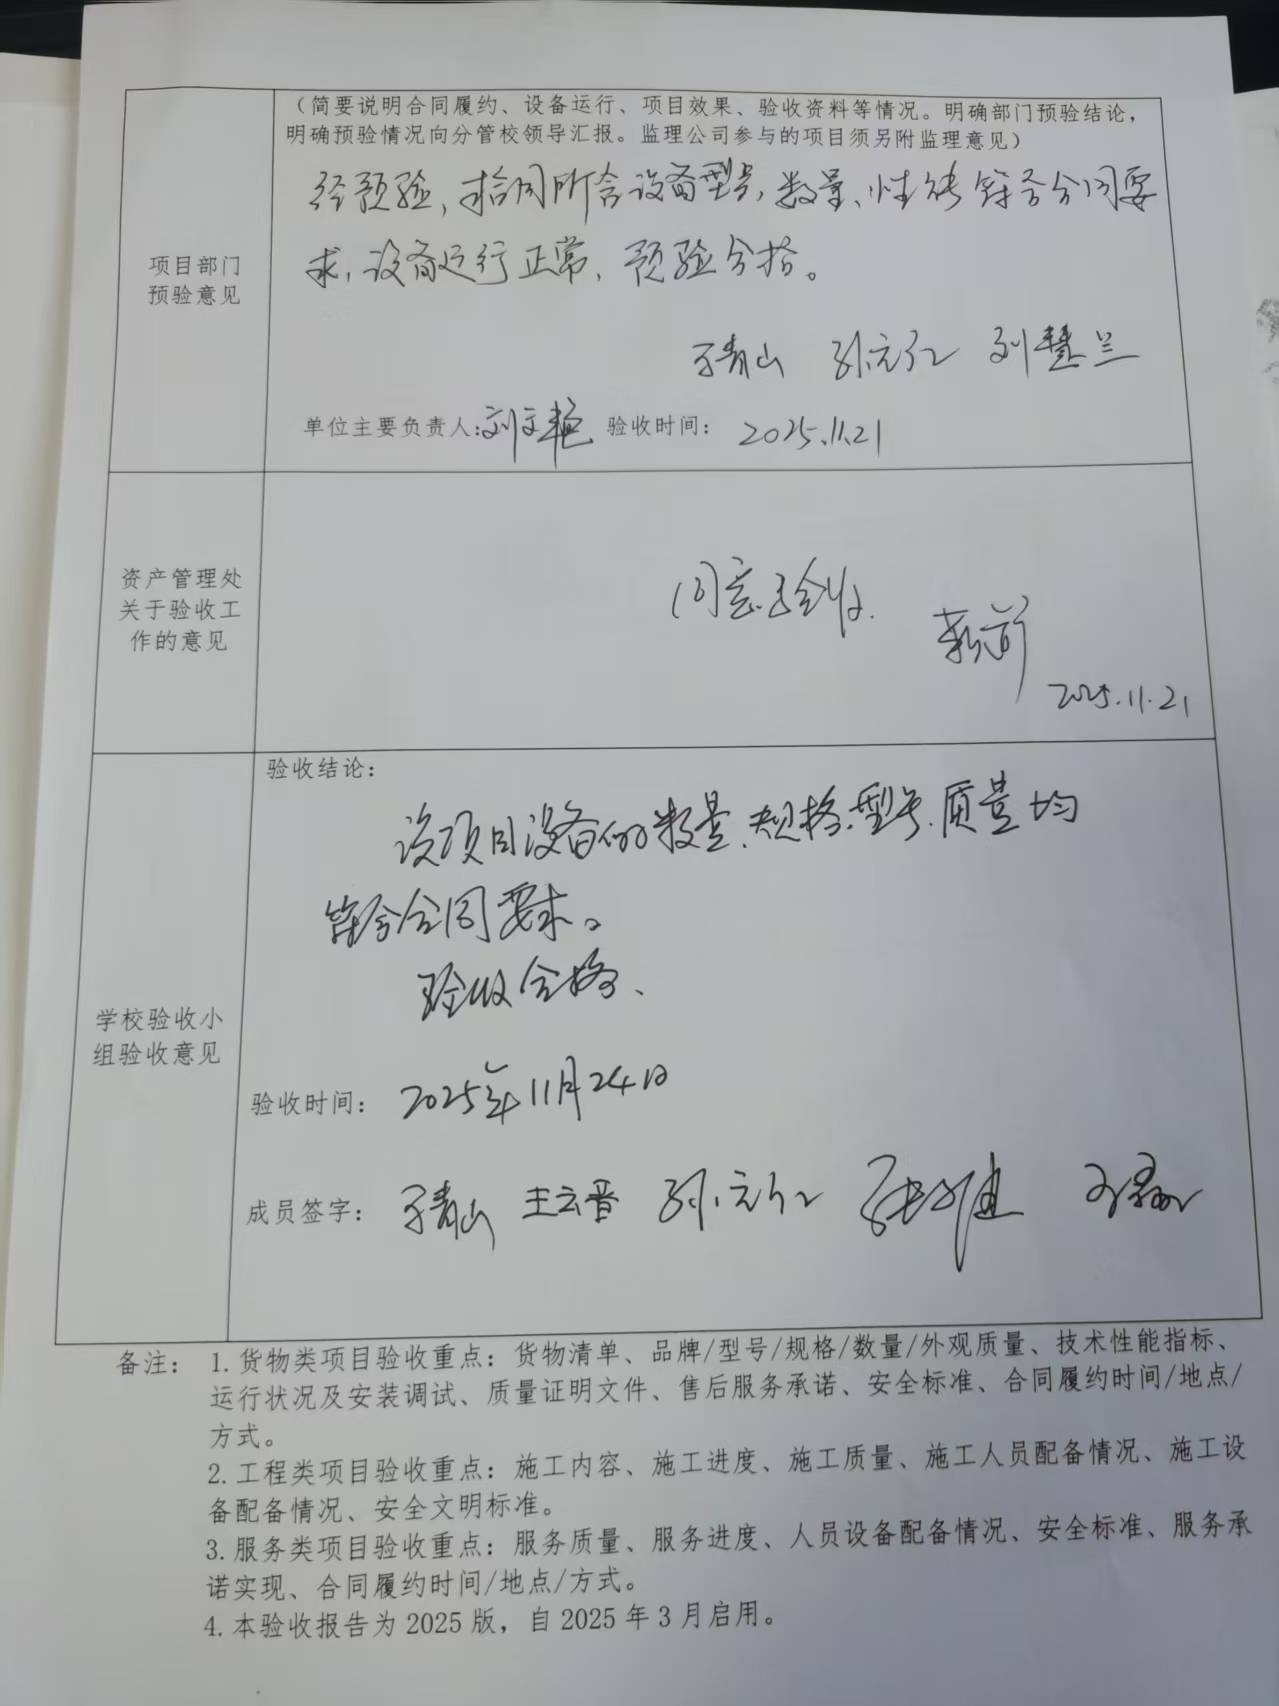 （简要说明合同履约、设备运行、项目效果、验收资料等情况。明确部门预验结论，
明确预验情况向分管校领导汇报。监理公司参与的项目须另附监理意见）
项目部门
预验意见
经预验，合同所含设备型号，数量、性能符合合同要
求，设备运行正常，预验合格。
于青山 孙元仁 刘慧兰
单位主要负责人：刘文艳 验收时间： 2025.11.21
资产管理处
关于验收工
作的意见
同意验收.
2025.11.21
学校验收小
组验收意见
验收结论：
该项目设备的数量、规格、型号、质量均
符合合同要求。
验收合格、
验收时间： 2025年11月24日
成员签字： 于青山 王云晋 孙元仁
备注： 1.货物类项目验收重点：货物清单、品牌/型号/规格/数量/外观质量、技术性能指标、
运行状况及安装调试、质量证明文件、售后服务承诺、安全标准、合同履约时间/地点/
方式。
2.工程类项目验收重点：施工内容、施工进度、施工质量、施工人员配备情况、施工设
备配备情况、安全文明标准。
3.服务类项目验收重点：服务质量、服务进度、人员设备配备情况、安全标准、服务承
诺实现、合同履约时间/地点/方式。
4.本验收报告为 2025 版，自 2025 年 3 月启用。